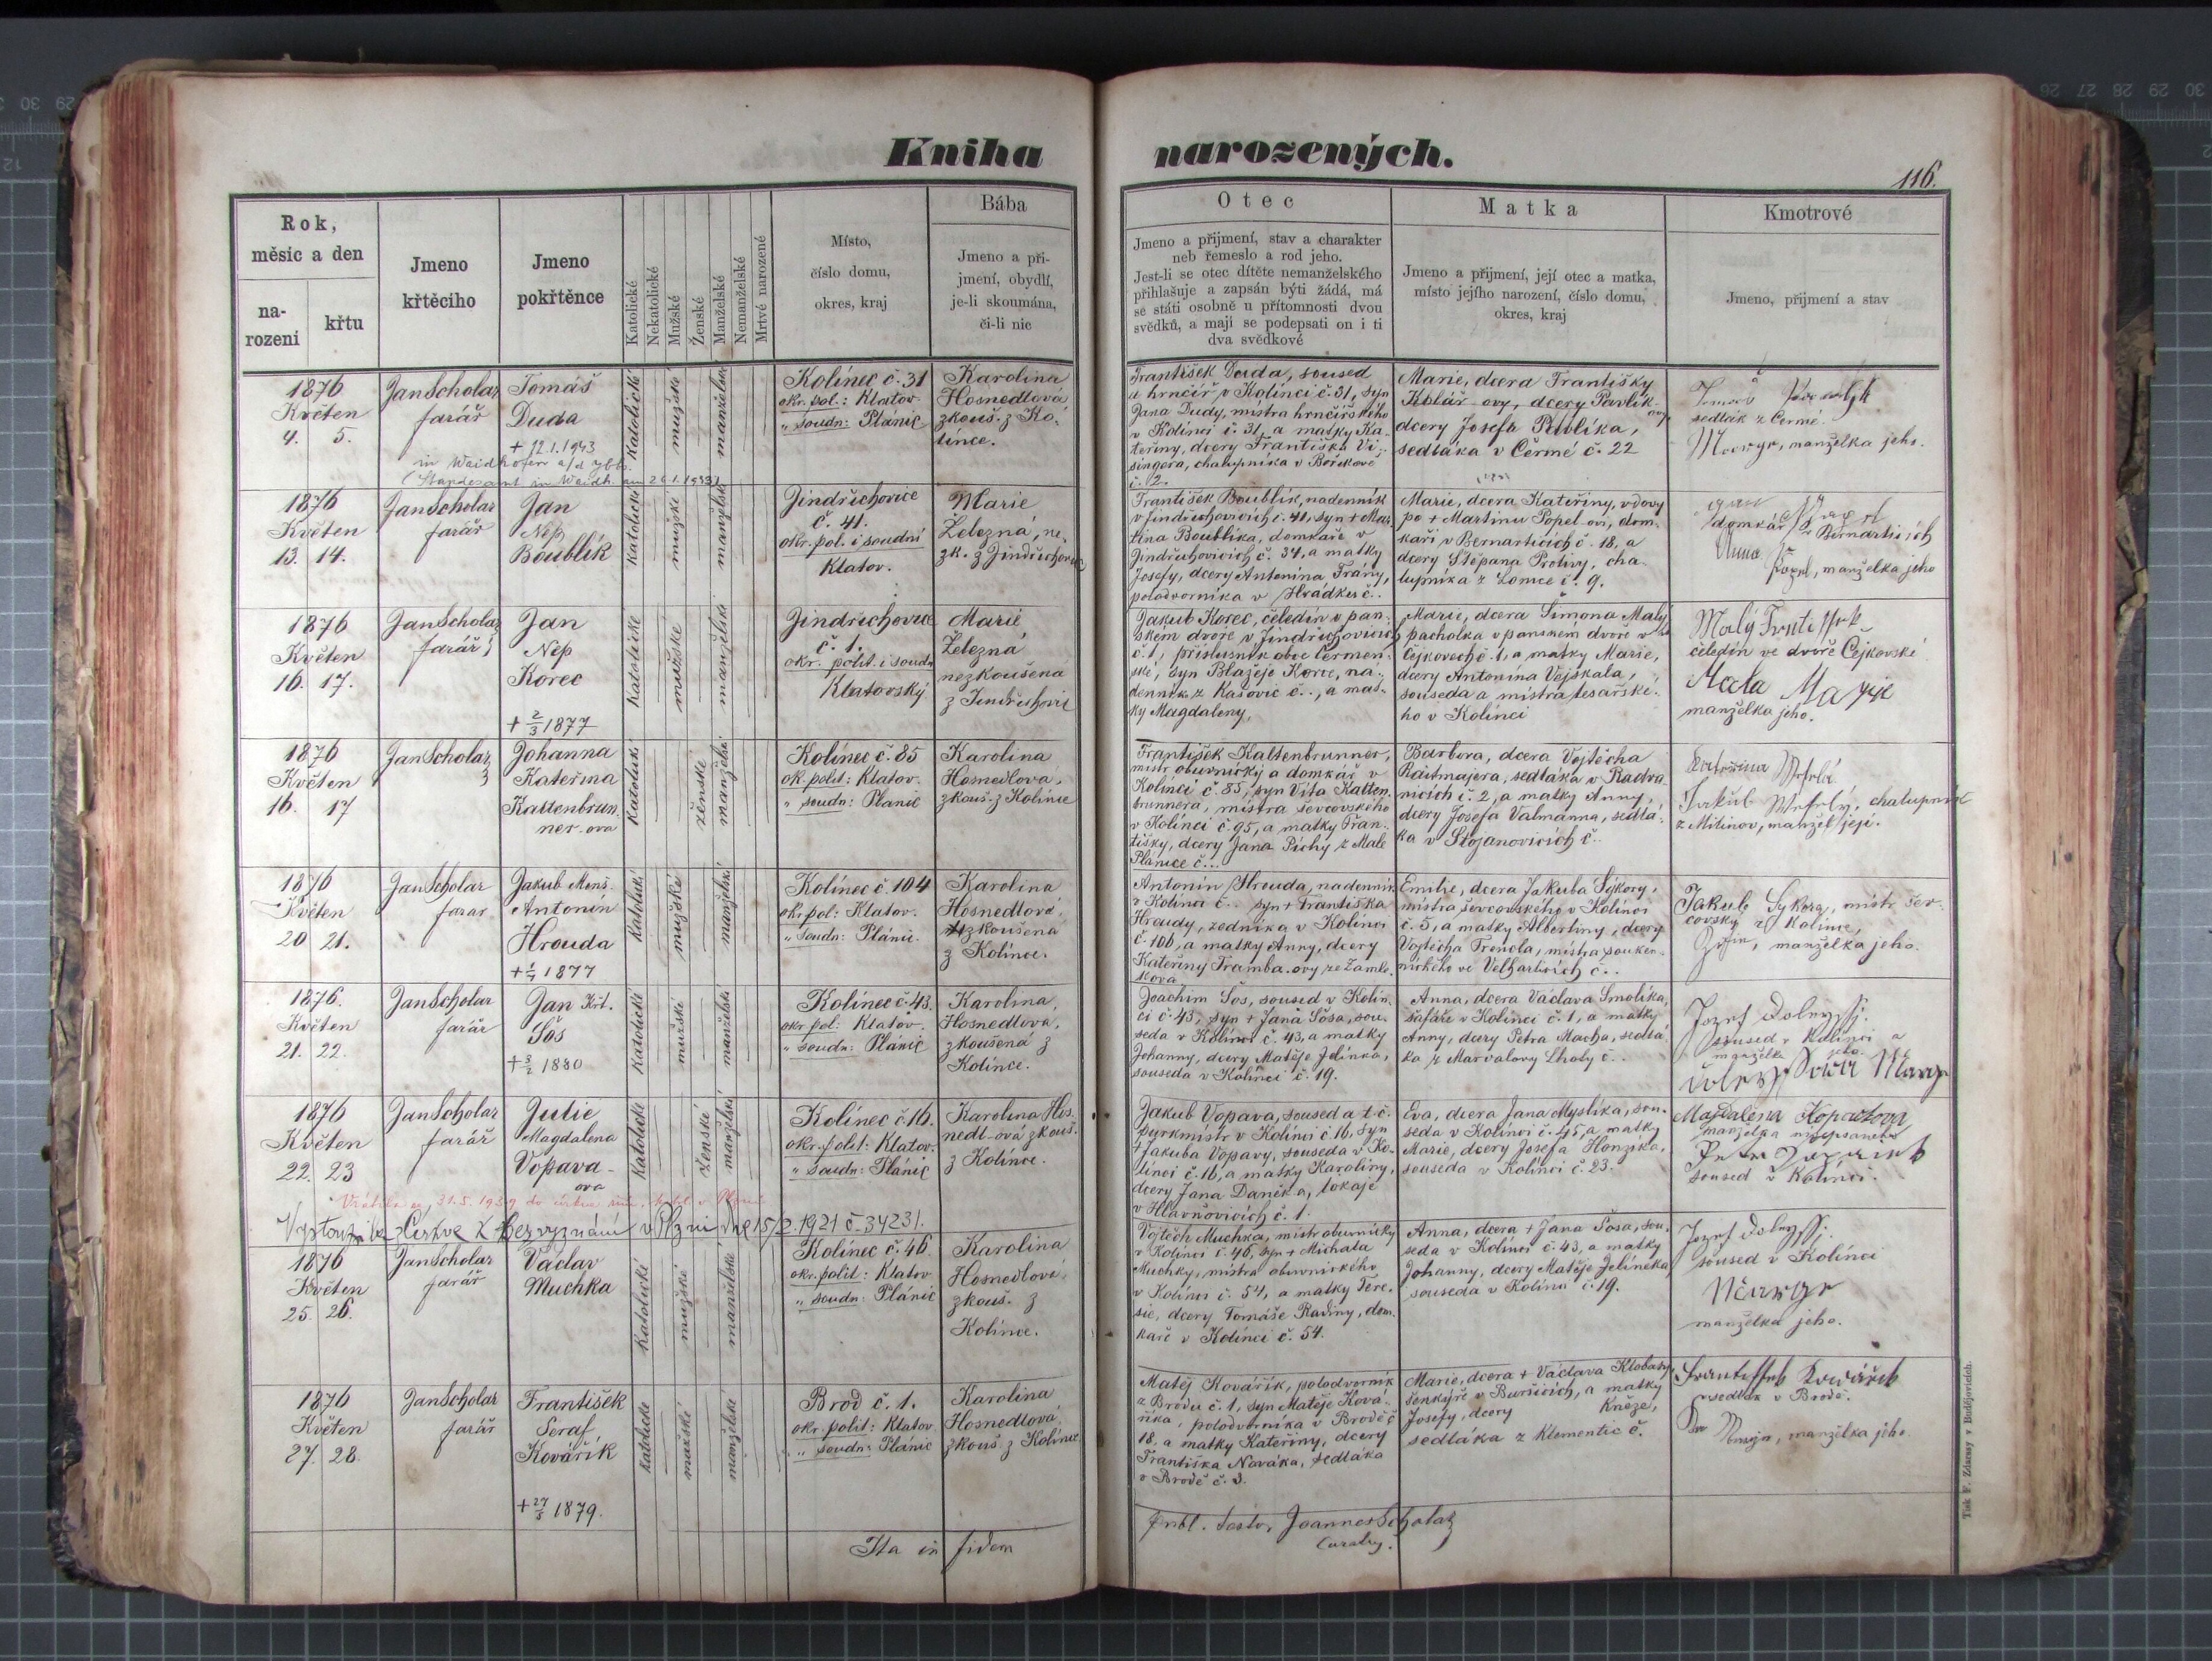 Kniha narozených.
116.
Rok,
měsíc a den
na-
rozeni
křtu
Jmeno
křtěcího
Jmeno
pokřtěnce
Katolické
Nekatolické
Mužské
Ženské
Manželské
Nemanželské
Mrtvé narozené
Místo,
číslo domu,
okres, kraj
Bába
Jmeno a při-
jmení, obydlí,
je-li skoumána,
či-li nic
Otec
Jmeno a přijmení, stav a charakter
neb řemeslo a rod jeho.
Jest-li se otec dítěte nemanželského
přihlašuje a zapsán býti žádá, má
se státi osobně u přítomnosti dvou
svědků, a mají se podepsati on i ti
dva svědkové
Matka
Jmeno a přijmení, její otec a matka,
místo jejího narození, číslo domu,
okres, kraj
Kmotrové
Jmeno, přijmení a stav
1876
Květen
4. 5.
Jan Scholaz
farář
Tomáš
Duda
+ 12.1.1943
in Waidhofen a/d ybbs
Katolické
mužské
manželské
Kolínec č. 31
okr. pol.: Klatov
" soudn: Plánic
Karolina
Hosnedlová
zkouš. z Ko-
línce.
František Duda, soused
a hrnčíř v Kolínci č. 31, syn
Jana Dudy, mistra hrnčířského
v Kolinci č. 31, a matky Ka-
teřiny, dcery Františka Vi-
singera, chalupníka v Bořikově
č. 2.
Marie, dcera Františky
Kolář-ovy, dcery Pavlík-
ovy
dcery Josefa Pavlíka,
sedláka v Čermé č. 22
sedlák z Čermé
manželka jeho.
1876
Květen
13. 14.
Jan Scholaz
farář
Jan
Nep
Boublík
Katolické
mužské
manželské
Jindřichovice
č. 41.
okr. pol. i soudní
Klatov.
Marie
Železná, ne-
zk. z Jindřichovic
František Boublík, nadenník
v Jindřichovicích č. 41, syn + Mar-
tina Boublíka, domkaře v
Jindřichovicích č. 34, a matky
Josefy, dcery Antonína Trány,
polodvorníka v Hrádku č..
Marie, dcera Kateřiny, vdovy
po + Martinu Popel-ovi, dom-
kaři v Bernarticích č. 18, a
dcery Štěpána Protivy, cha-
lupníka z Lomce č. 9.
domkář v Bernarticích
Anna
Popel, manželka jeho
1876
Květen
16. 17.
Jan Scholaz
farář
Jan
Nep
Korec
+ 2/3 1877
Katolické
mužské
manželské
Jindřichovice
č. 1.
okr. polit. i soudn
Klatovský
Marie
Železná
nezkoušena
z Jindřichovic
Jakub Korec, čeledín v pan-
ském dvoře v Jindřichovicích
č. 1, příslušník obce Čermen-
ské, syn Blažeje Korce, ná-
denníka z Kašovic č.., a mat-
ky Magdaleny,
Marie, dcera Šimona Malý-
pacholka v panském dvoře v
Čejkovech č. 1, a matky Marie,
dcery Antonína Vojskala,
souseda a mistra tesařské-
ho v Kolínci
Malý
čeledín ve dvoře Čejkovské
Mala
manželka jeho.
1876
Květen
16. 17
Jan Scholaz
Johanna
Kateřina
Kaltenbrun-
ner-ova
Katolické
ženské
manželské
Kolínec č. 85
ok. polit: Klatov.
" soudn: Plánic
Karolina
Hosnedlova,
zkouš. z Kolínce
František Kaltenbrunner,
mistr obuvnický a domkář v
Kolínci č. 85, syn Víta Kalten-
brunnera, mistra ševcovského
v Kolínci č. 95, a matky Fran-
tišky, dcery Jana Píchy z Malé
Plánice č...
Barbora, dcera Vojtěcha
Raitmajera, sedláka v Radva-
nicích č. 2, a matky Anny,
dcery Josefa Valmanna, sedlá-
ka v Stojanovicích č..
Kateřina
Jakub chalupník
z Milinov, manžel její.
1876
Květen
20 21.
Jan Scholaz
farář
Jakub Menš.
Antonín
Hrouda
+ 1/7 1877
Katolické
mužské
manželské
Kolínec č. 104
okr. pol: Klatov.
" soudn: Plánic.
Karolina
Hosnedlová
zkoušená
z Kolínce.
Antonín Hrouda, nadenník
v Kolínci č.. syn + Františka
Hroudy, zedníka v Kolínci
č. 106, a matky Anny, dcery
Kateřiny Tramba-ovy ze Zamle-
kova
Emilie, dcera Jakuba Sýkory,
mistra ševcovského v Kolínci
č. 5, a matky Albertiny, dcery
Vojtěcha Trencla, mistra souken-
nického ve Velharticích č..
Jakub Sykora, mistr šev-
covský z Kolince,
manželka jeho.
1876.
Květen
21. 22.
Jan Scholar
farář
Jan Křt.
Šos
+ 3/2 1880
Katolické
mužské
manželské
Kolínec č. 43.
okr pol: Klatov.
" soudn: Plánic
Karolina,
Hosnedlová,
zkoušená z
Kolínce.
Joachim Šos, soused v Kolín-
ci č. 43, syn + Jana Šosa, sou-
seda v Kolínci č. 43, a matky
Johanny, dcery Matěje Jelínka,
souseda v Kolínci č. 19.
Anna, dcera Václava Smolíka,
šafáře v Kolínci č. 1, a matky
Anny, dcery Petra Macha, sedlá-
ka z Marvalovy Lhoty č..
Jozef
soused v Kolínci a
manželka jeho.
1876
Květen
22. 23
Jan Scholar
farář
Julie
Magdalena
Vopava-
ova
Katolické
ženské
manželské
Kolínec č. 16.
okr. polit: Klatov.
" soudn: Plánic
Karolina Hos-
nedl-ová zkouš.
z Kolínce.
Jakub Vopava, soused a t. č.
purkmistr v Kolínci č 16, syn
+ Jakuba Vopavy, souseda v Ko-
línci č. 16, a matky Karoliny,
dcery Jana Daněka, lokaje
v Hlavňovicích č. 1.
Eva, dcera Jana Myslíka, sou-
seda v Kolínci č. 45, a matky
Marie, dcery Josefa Honzíka,
souseda v Kolínci č. 23.
Magdalena
manželka
soused v Kolínci.
31.5.1939 do církve
Vystoupila z Církve k bezvyznání v Plzni dne 15/2. 1921 č. 34231.
1876
Květen
25. 26.
Jan Scholar
farář
Václav
Muchka
Katolické
mužské
manželské
Kolínec č. 46.
okr. polit: Klatov
" soudn: Plánic
Karolina
Hosnedlová
zkouš. z
Kolínce.
Vojtěch Muchka, mistr obuvnický
v Kolínci č. 46, syn + Michala
Muchky, mistra obuvnického
v Kolínci č. 54, a matky Tere-
sie, dcery Tomáše Radiny, dom-
kaře v Kolínci č. 54.
Anna, dcera + Jana Šosa, sou-
seda v Kolínci č. 43, a matky
Johanny, dcery Matěje Jelínka
souseda v Kolínci č. 19.
Jozef
soused v Kolínci
manželka jeho.
1876
Květen
27. 28.
Jan Scholar
farář
František
Seraf.
Kovářík
+ 27/5 1879.
Katolické
mužské
manželské
Brod č. 1.
okr. polit: Klatov
" soudn: Plánic
Karolina
Hosnedlová,
zkouš. z Kolínce
Matěj Kovářík, polodvorník
z Brodu č. 1, syn Matěje Ková-
říka, polodvorníka v Brodě č
18, a matky Kateřiny, dcery
Františka Nováka, sedláka
v Brodě č. 3.
Marie, dcera + Václava Klobasy,
šenkýře v Buršicích, a matky
Josefy, dcery Kněze,
sedláka z Klementic č.
sedlák v Brodě.
manželka jeho
Ita in fidem
Joannes Scholaz
Tisk F. Zdarssy v Budějovicích.